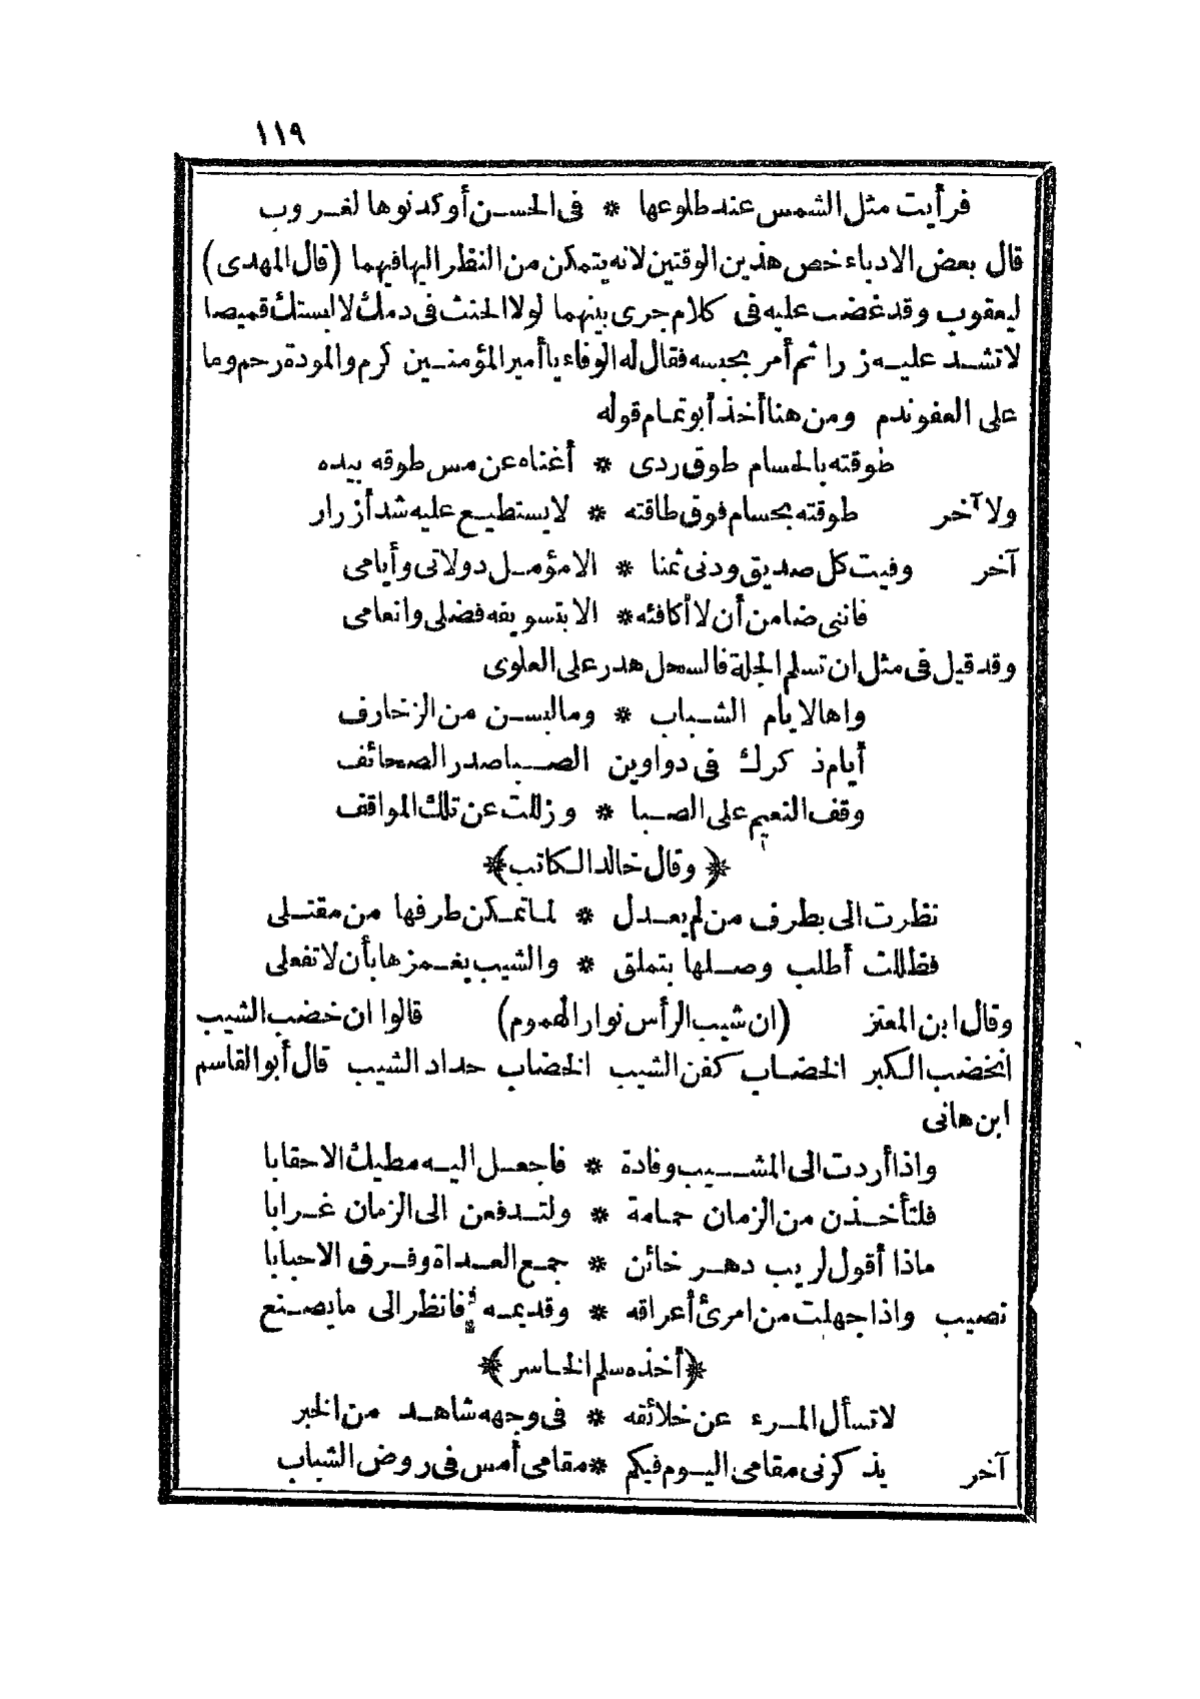 ١١٩
فرأيت مثل الشمس عند طلوعها * فى الحسن أو كدنوها لغروب
قال بعض الادباء خص هذين الوقتين لانه يتمكن من النظر اليها فيهما (قال المهدى)
ليعقوب وقد غضب عليه فى كلام جرى بينهما لولا الحنث فى دمك لالبستك قميصا
لا تشد عليه زرا ثم أمر بحبسه فقال له الوفاء يا أمير المؤمنين كرم والمودة رحم وما
على العفو ندم ومن هنا أخذ أبو تمام قوله
طوقته بالحسام طوق ردى * أغناه عن مس طوقه بيده
ولآخر طوقته بحسام فوق طاقته * لا يستطيع عليه شد أزرار
آخر وفيت كل صديق ودنى ثمنا * الا مؤمل دولاتى وأيامى
فاننى ضامن أن لا أكافئه * الا بتسويقه فضلى وانعامى
وقد قيل فى مثل ان تسلم الجلة فالسحل هدر على العلوى
واها لايام الشباب * وما لبسن من الزخارف
أيام ذكرك فى دواوين الصبا صدر الصحائف
وقف النعيم على الصبا * وزللت عن تلك المواقف
﴿وقال خالد الكاتب﴾
نظرت الى بطرف من لم يعدل * لما تمكن طرفها من مقتلى
فظللت أطلب وصلها بتملق * والشيب يغمزها بأن لا تفعلى
وقال ابن المعتز (ان شيب الرأس نوار الهموم) قالوا ان خضب الشيب
انخضب الكبر الخضاب كفن الشيب الخضاب حداد الشيب قال أبو القاسم
ابن هانى
واذا أردت الى المشيب وفادة * فاجعل اليه مطيك الاحقابا
فلتأخذن من الزمان حمامة * ولتدفعن الى الزمان غرابا
ماذا أقول لريب دهر خائن * جمع العداة وفرق الاحبابا
نصيب واذا جهلت من امرئ أعراقه * وقديمه فانظر الى ما يصنع
﴿أخذه سلم الخاسر﴾
لا تسأل المرء عن خلائقه * فى وجهه شاهد من الخبر
آخر يذكرنى مقامى اليوم فيكم * مقامى أمس فى روض الشباب